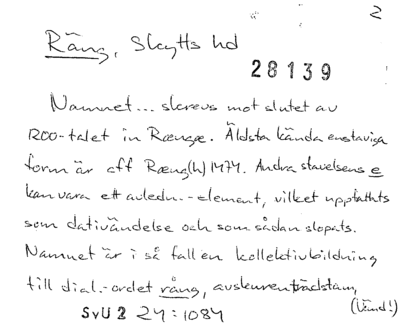 2
Räng, Skytts hd
28139
Namnet... skrevs mot slutet av
1200-talet in Rænge. Äldsta kända enstaviga
form är aff Ræng(h) 1474. Andra stavelsens e
kan vara ett avledn.-element, vilket uppfattats
som dativändelse och som sådan slopats.
Namnet är i så fall en kollektivbildning
till dial.-ordet rång, avskuren trädstam,
(Vänd!)
SvU 2 24:1084